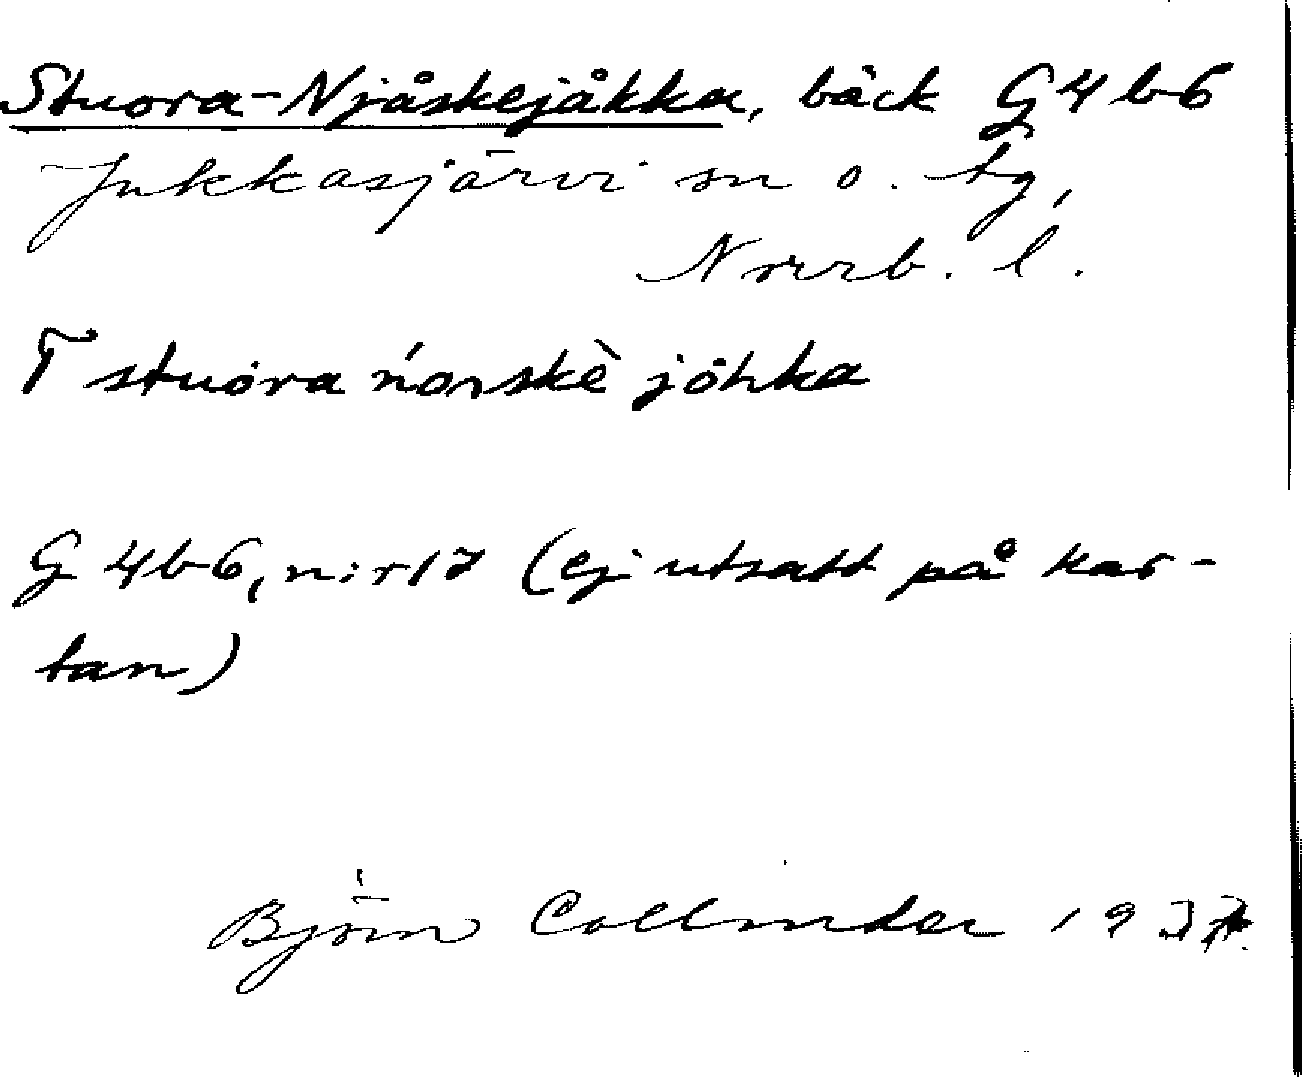 Stuora-Njåskejåkka, bäck G4b6
Jukkasjärvi sn o. tg,
Norrb. l.
T stuora ńorskè jòhka
G 4b6, n:r 17 (ej utsatt på kar-
tan)
Björn Collinder